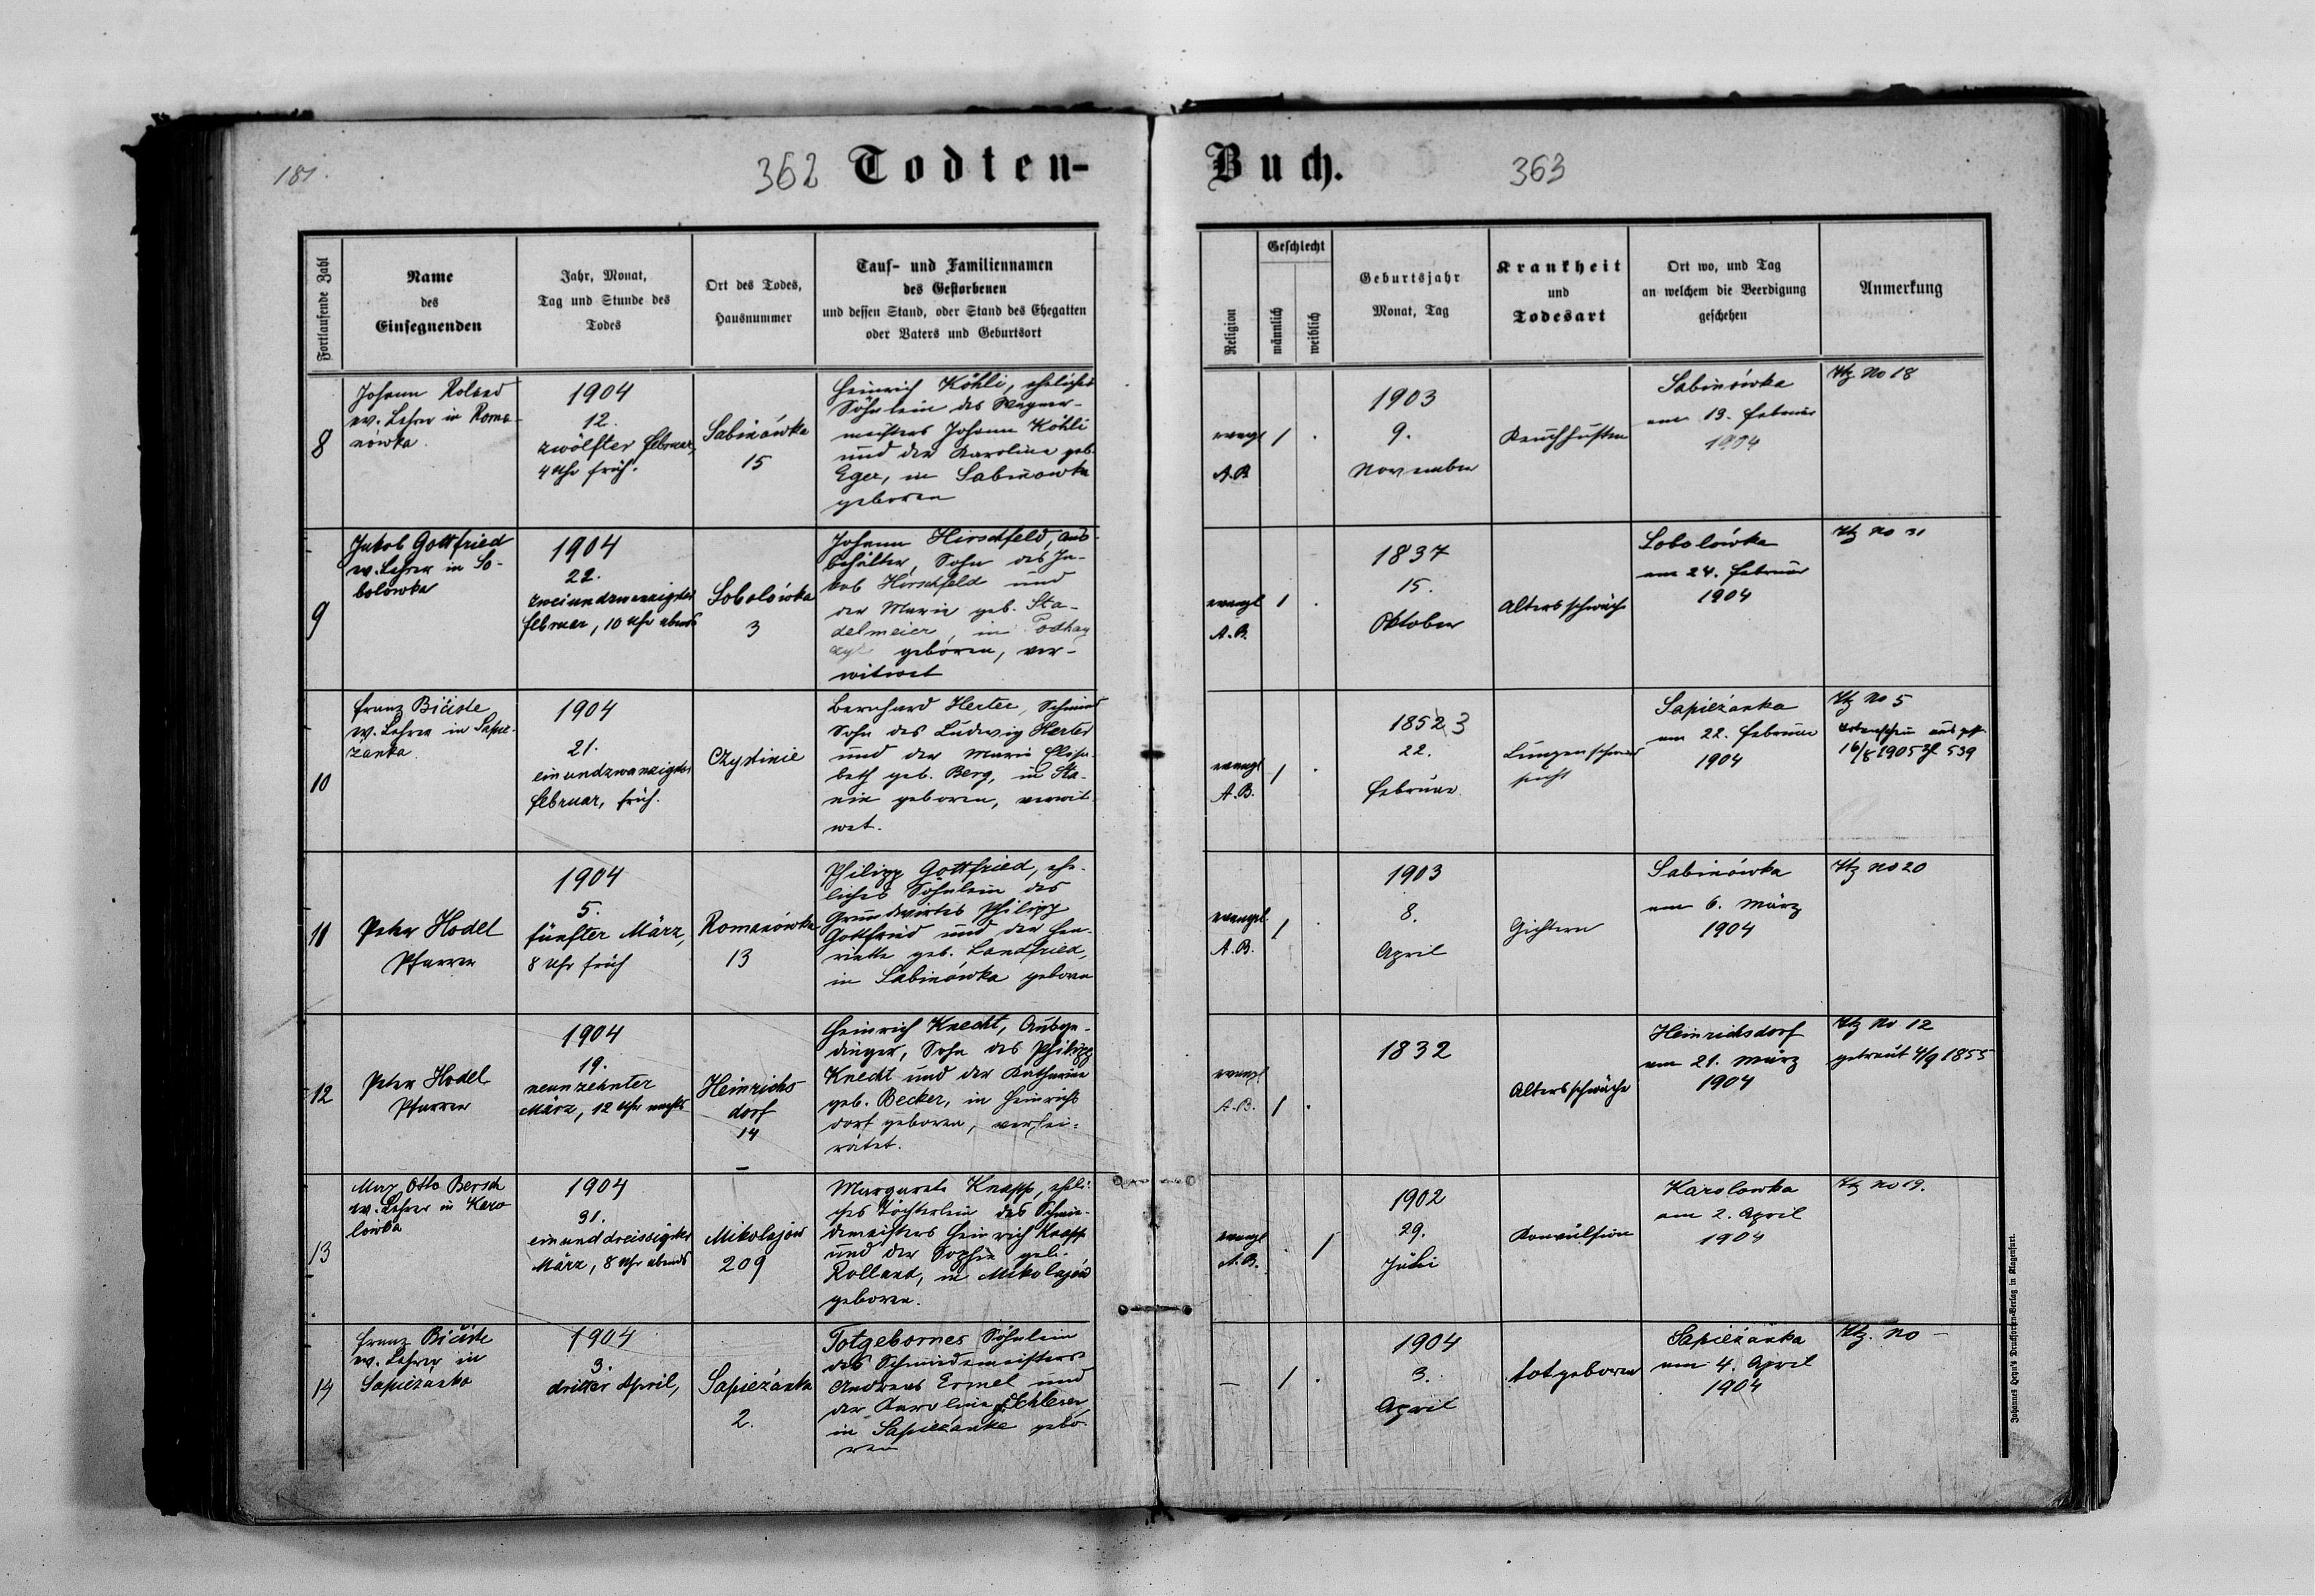 181.
362 Todten-
Buch. 363
Fortlaufende Zahl
Name
des
Einsegnenden
Jahr, Monat,
Tag und Stunde des
Todes
Ort des Todes,
Hausnummer
Tauf- und Familiennamen
des Gestorbenen
und dessen Stand, oder Stand des Ehegatten
oder Vaters und Geburtsort
Religion
Geschlecht
männlich
weiblich
Geburtsjahr
Monat, Tag
Krankheit
und
Todesart
Ort wo, und Tag
an welchem die Beerdigung
geschehen
Anmerkung
8
Johann
ev. Lehrer in Roma-
nowka.
1904
12.
zwölfter Februar,
4 Uhr früh.
Sabinówka
15
Heinrich Köhli, eheliches
Söhnlein des Wagner-
meisters Johann Köhli
und der Karolina geb.
Eger, in Sabinowka
geboren
evangl
A.B.
1 .
1903
9.
November
Keuchhusten
Sabinówka
am 13. Februar
1904
Htz. No 18
9
Jakob Gottfried
ev. Lehrer in So-
bolowka
1904
22.
zweiundzwanzigster
Februar, 10 Uhr abends
Sobolówka
3
Johann Hirschfeld, Aus-
behälter, Sohn des Ja-
kob Hirschfeld und
der Maria geb. Sta-
delmeier, in Podhay
geboren, ver-
witwet
evangl
A.B.
1 .
1837
15.
Oktober
Altersschwäche
Sobolówka
am 24. Februar
1904
Htz No
10
Franz Bičiste
ev. Lehrer in Sapie-
żanka.
1904
21.
einundzwanzigster
Februar, früh.
Czystinie
Bernhard Herter, Schmied
Sohn des Ludwig Herter
und der Maria Elisa-
beth geb. Berg, in Sta-
nin geboren, verwit-
wet.
evangl
A.B.
1 .
1852 3
22.
Februar.
Lungenschwind
sucht
Sapieżanka
am 22. Februar
1904
Htz No 5
Totenschein ausgest.
16/8 1905 Zl 539
11
Peter Hodel
Pfarrer
1904
5.
fünfter März,
8 Uhr früh
Romanówka
13
Philipp Gottfried, ehe-
liches Söhnlein des
Grundwirtes Philipp
Gottfried und der Hen-
riette geb. Landfried,
in Sabinówka geboren
evangel
A.B.
1 .
1903
8.
April
Gichtern
Sabinówka
am 6. März
1904
Htz No 20
12
Peter Hodel
Pfarrer
1904
19.
neunzehnter
März, 12 Uhr nachts
Heinrichs
dorf
14
Heinrich Knecht, Ausge-
dinger, Sohn des Philipp
Knecht und der Katharina
geb. Becker, in Heinrichs
dorf geboren, verhei-
ratet.
evangl
A.B.
1 .
1832
Altersschwäche
Heinrichsdorf
am 21. März
1904
Htz No 12
getraut 4/9 1855
13
Max Otto Bersch
ev. Lehrer in Karo
lowka
1904
31.
einunddreissigster
März, 8 Uhr abends
Mikolajów
209
Margareta Knapp, eheli-
ches Töchterlein des Schmie-
demeisters Heinrich Knapp
und der Sophie geb.
Rolland, in Mikolajów
geboren.
evangl
A.B.
. 1
1902
29.
Juli
Konvulsion
Karolowka
am 2. April
1904
Htz No 19.
14
Franz Bičiste
ev. Lehrer in
Sapieżanka
1904
3.
dritter April,
Sapieżanka
2.
Totgebornes Söhnlein
des Schmiedemeisters
Andreas Ermel und
der Karolina g. Schlerer,
in Sapieżanka gebo
ren
—
1 .
1904
3.
April
totgeboren
Sapieżanka
am 4. April
1904
Htz. No —
Johannes Heyn's Drucksorten-Verlag in Klagenfurt.